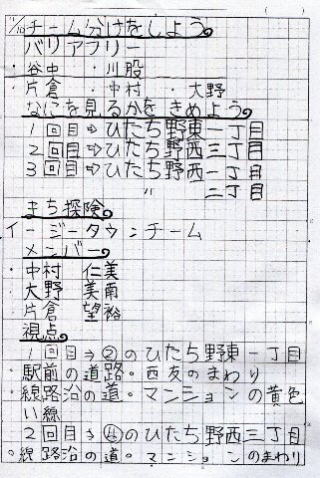 11/10チーム分けをしよう。
バリアフリー
・谷中 ・川股
・片倉 ・中村 ・大野
なにを見るかをきめよう。
1回目⇨ひたち野東一丁目
2回目⇨ひたち野西三丁目
3回目⇨ひたち野西一丁目
〃 二丁目
まち探険
イージータウンチーム
メンバー
・中村 仁美
・大野 美南
・片倉 望裕
視点
1回目⇨②のひたち野東一丁目
・駅前の道路・西友のまわり
・線路沿の道・マンションの黄色
い線
2回目⇨④のひたち野西三丁目
・線路沿の道・マンションのまわり